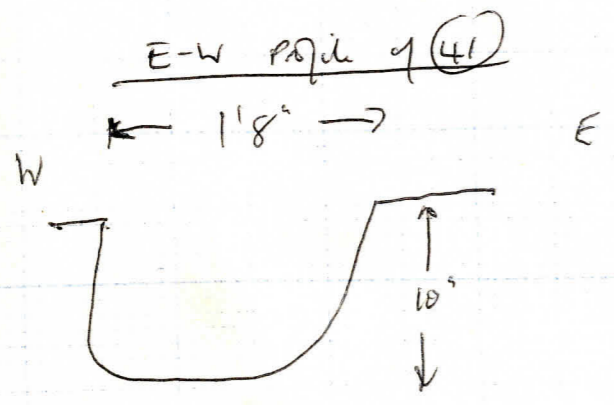 E-W Profile of 41
1'8"
W E
10"